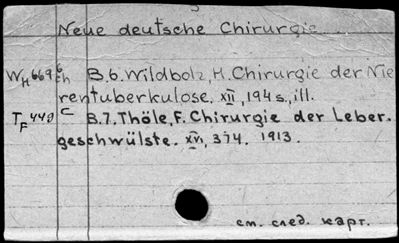 Neue deutsche Chirurgie
WH669ch B.6. Wildbolz, H. Chirurgie der Nie
rentuberkulose. XII, 194 s., ill.
TF449 c B.7. Thöle, F. Chirurgie der Leber.
geschwülste. XVI, 374. 1913.
см. след. карт.